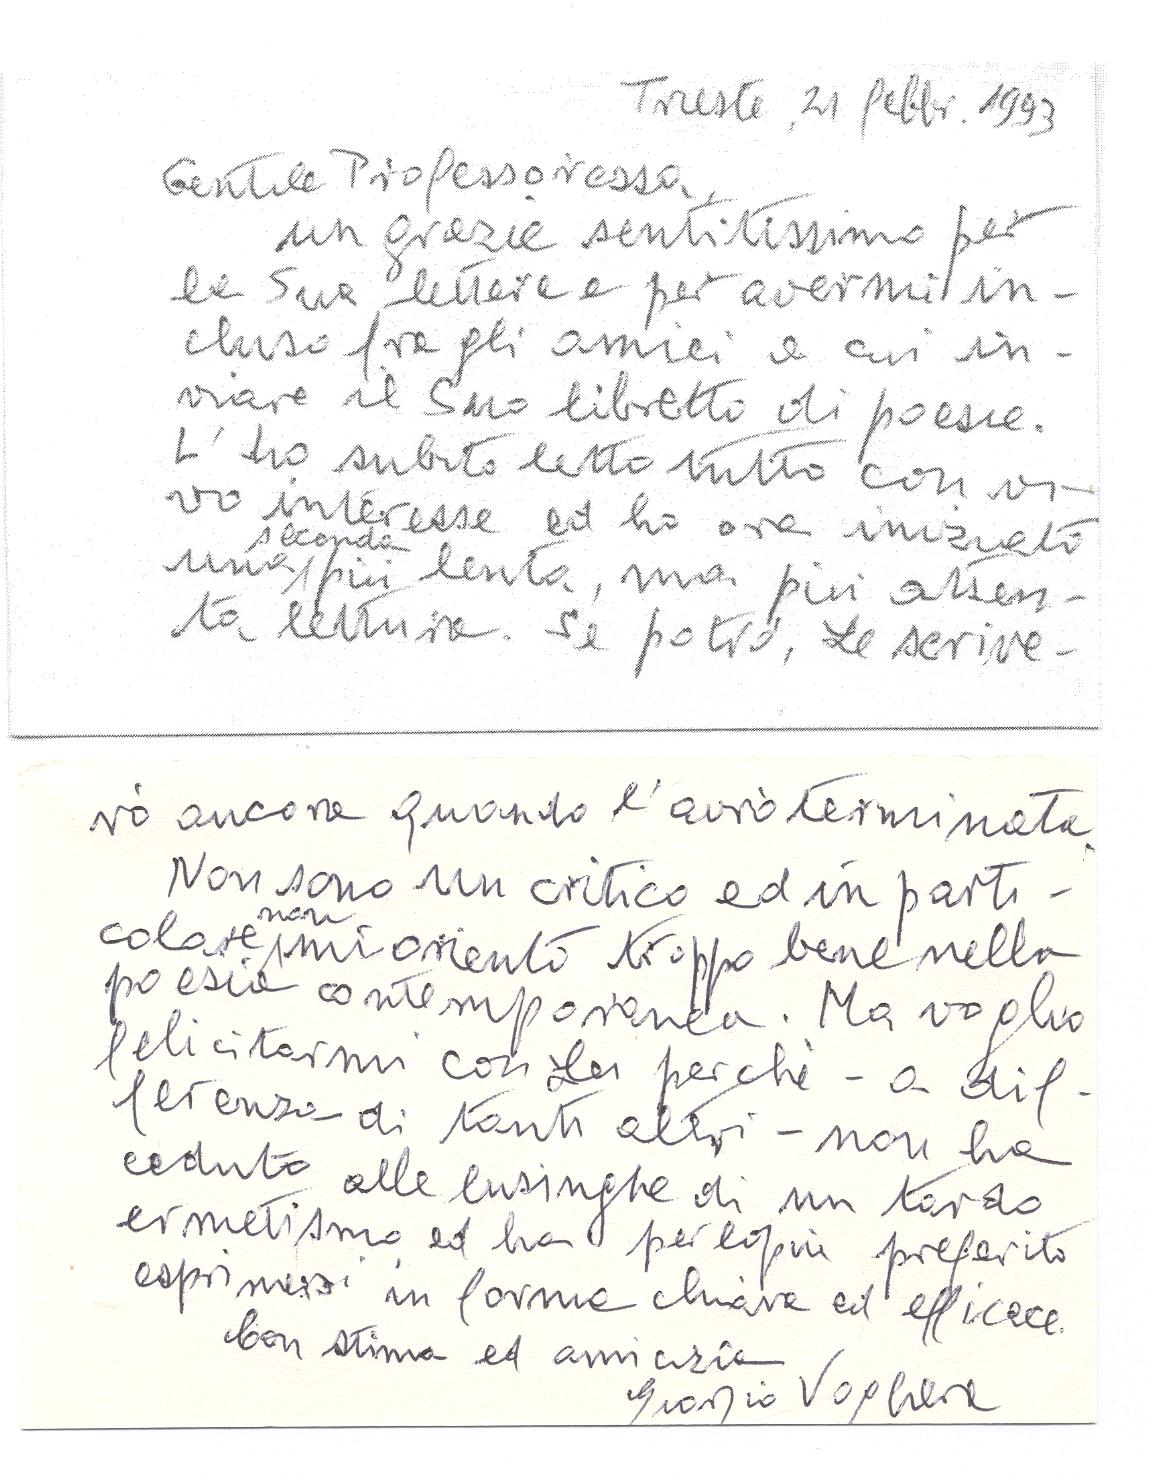 Trieste, 21 febbr. 1993
Gentile Professoressa,
un grazie sentitissimo per
la Sua lettera e per avermi in-
cluso fra gli amici a cui in-
viare il Suo libretto di poesie.
L'ho subito letto tutto con vi-
vo interesse ed ho ora iniziato
seconda
una più lenta, ma più atten-
ta lettura. Se potrò, Le scrive-
rò ancora quando l'avrò terminata.
Non sono un critico ed in parti-
non
colare, mi oriento troppo bene nella
poesia contemporanea. Ma voglio
felicitarmi con Lei perchè - a dif-
ferenza di tanti altri - non ha
ceduto alle lusinghe di un tardo
ermetismo ed ha perlopiù preferito
esprimersi in forma chiara ed efficace.
Con stima ed amicizia
Giorgio Voghera